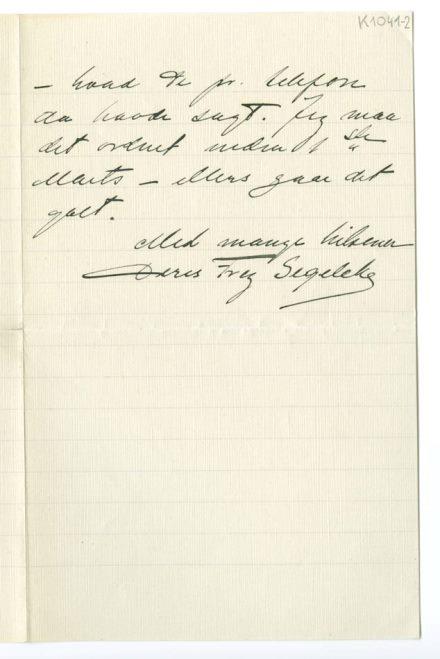 K1041-2
– hvad De pr. telefon
da havde sagt. Jeg maa
det ordnet inden 1ste
Marts – ellers gaar det
galt.
Med mange hilsener
Deres Frez Segelcke